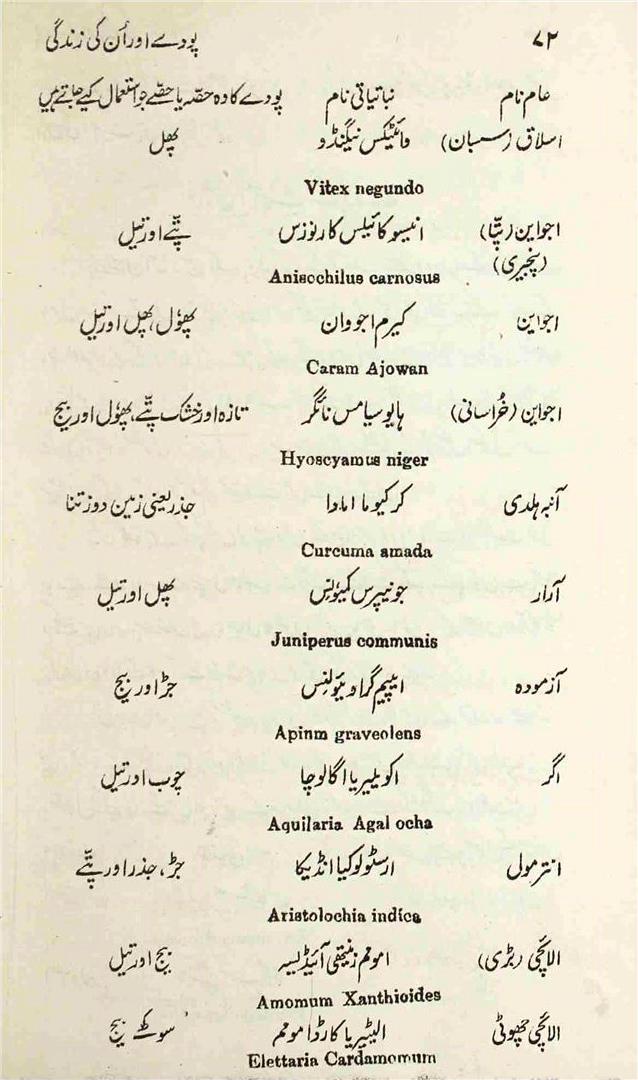 ۷۲ پودے اور اُن کی زندگی
عام نام نباتیاتی نام پودے کا وہ حصّہ یا حصّے جو استعمال کیے جاتے ہیں
اسلاق (سسبان) وائٹیکس نیگنڈو پھل
Vitex negundo
اجواین (پتّا) انیسوکائیلس کارنوزس پتّے اور تیل
(پنجیری)
Anisochilus carnosus
اجواین کیرم اجووان پھوٗل، پھل اور تیل
Caram Ajowan
اجواین (خُراسانی) ہایوسیامس نائگر تازہ اور خشک پتّے، پھوٗل اور بیج
Hyoscyamus niger
آنبہ ہلدی کرکیوما امادا جذر یعنی زمین دوز تنا
Curcuma amada
آرار جونیپرس کمیونِس پھل اور تیل
Juniperus communis
آزمودہ ایپیم گراویولنس جڑ اور بیج
Apinm graveolens
اگر اکویلیریا اگالوچا چوب اور تیل
Aquilaria Agal ocha
انترمول ارسٹولوکیا انڈیکا جڑ، جذر اور پتّے
Aristolochia indica
الائچی (بڑی) امومم زینتھی آئیڈیس بیج اور تیل
Amomum Xanthioides
الائچی چھوٹی الیٹیریا کارڈامومم سوکھے بیج
Elettaria Cardamomum